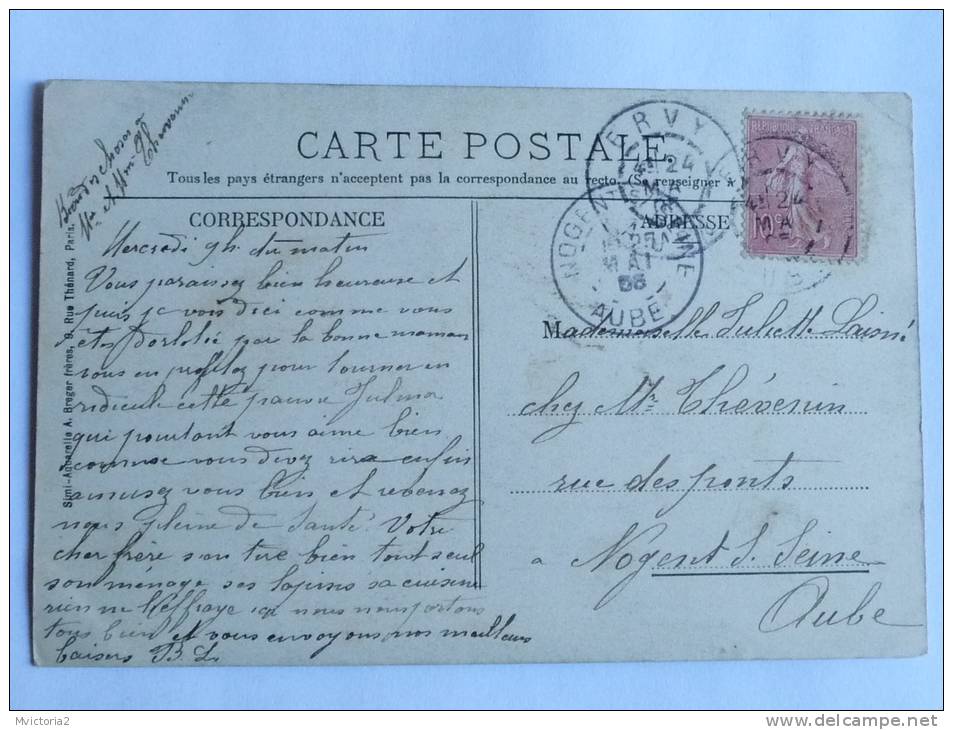 CARTE POSTALE
Tous les pays étrangers n'acceptent pas la correspondance au recto. (Se renseigner
CORRESPONDANCE
ADRESSE
Simi-Aquarelle A. Breger frères, 9, Rue Thénard, Paris.
choses
Mr et Mme Thévenin
Mercredi 9h. du matin
Vous paraissez bien heureuse et
puis je vous dici comme vous
etes Dorlotée par la bonne maman
vous en profitez pour tourner en
ridicule cette pauvre Julma
qui pourtant vous aime bien
comme vous devez rire enfin
amusez vous bien et revenez
nous pleine de santé Votre
cher frère s'en tire bien tout seul
son ménage ses lapins sa cuisine
rien ne l'effraye ici nous nous portons
tous bien et vous envoyons nos meilleurs
baisers B. L.
ERVY
24
NOGENT S SEINE
MAI
AUBE
ERVY
24
RÉPUBLIQUE FRANÇAISE
10
Mademoiselle Juliette Laisné
chez Mr Thévenin
rue des ponts
a Nogent S. Seine
Aube
Mvictoria2
delcampe.net